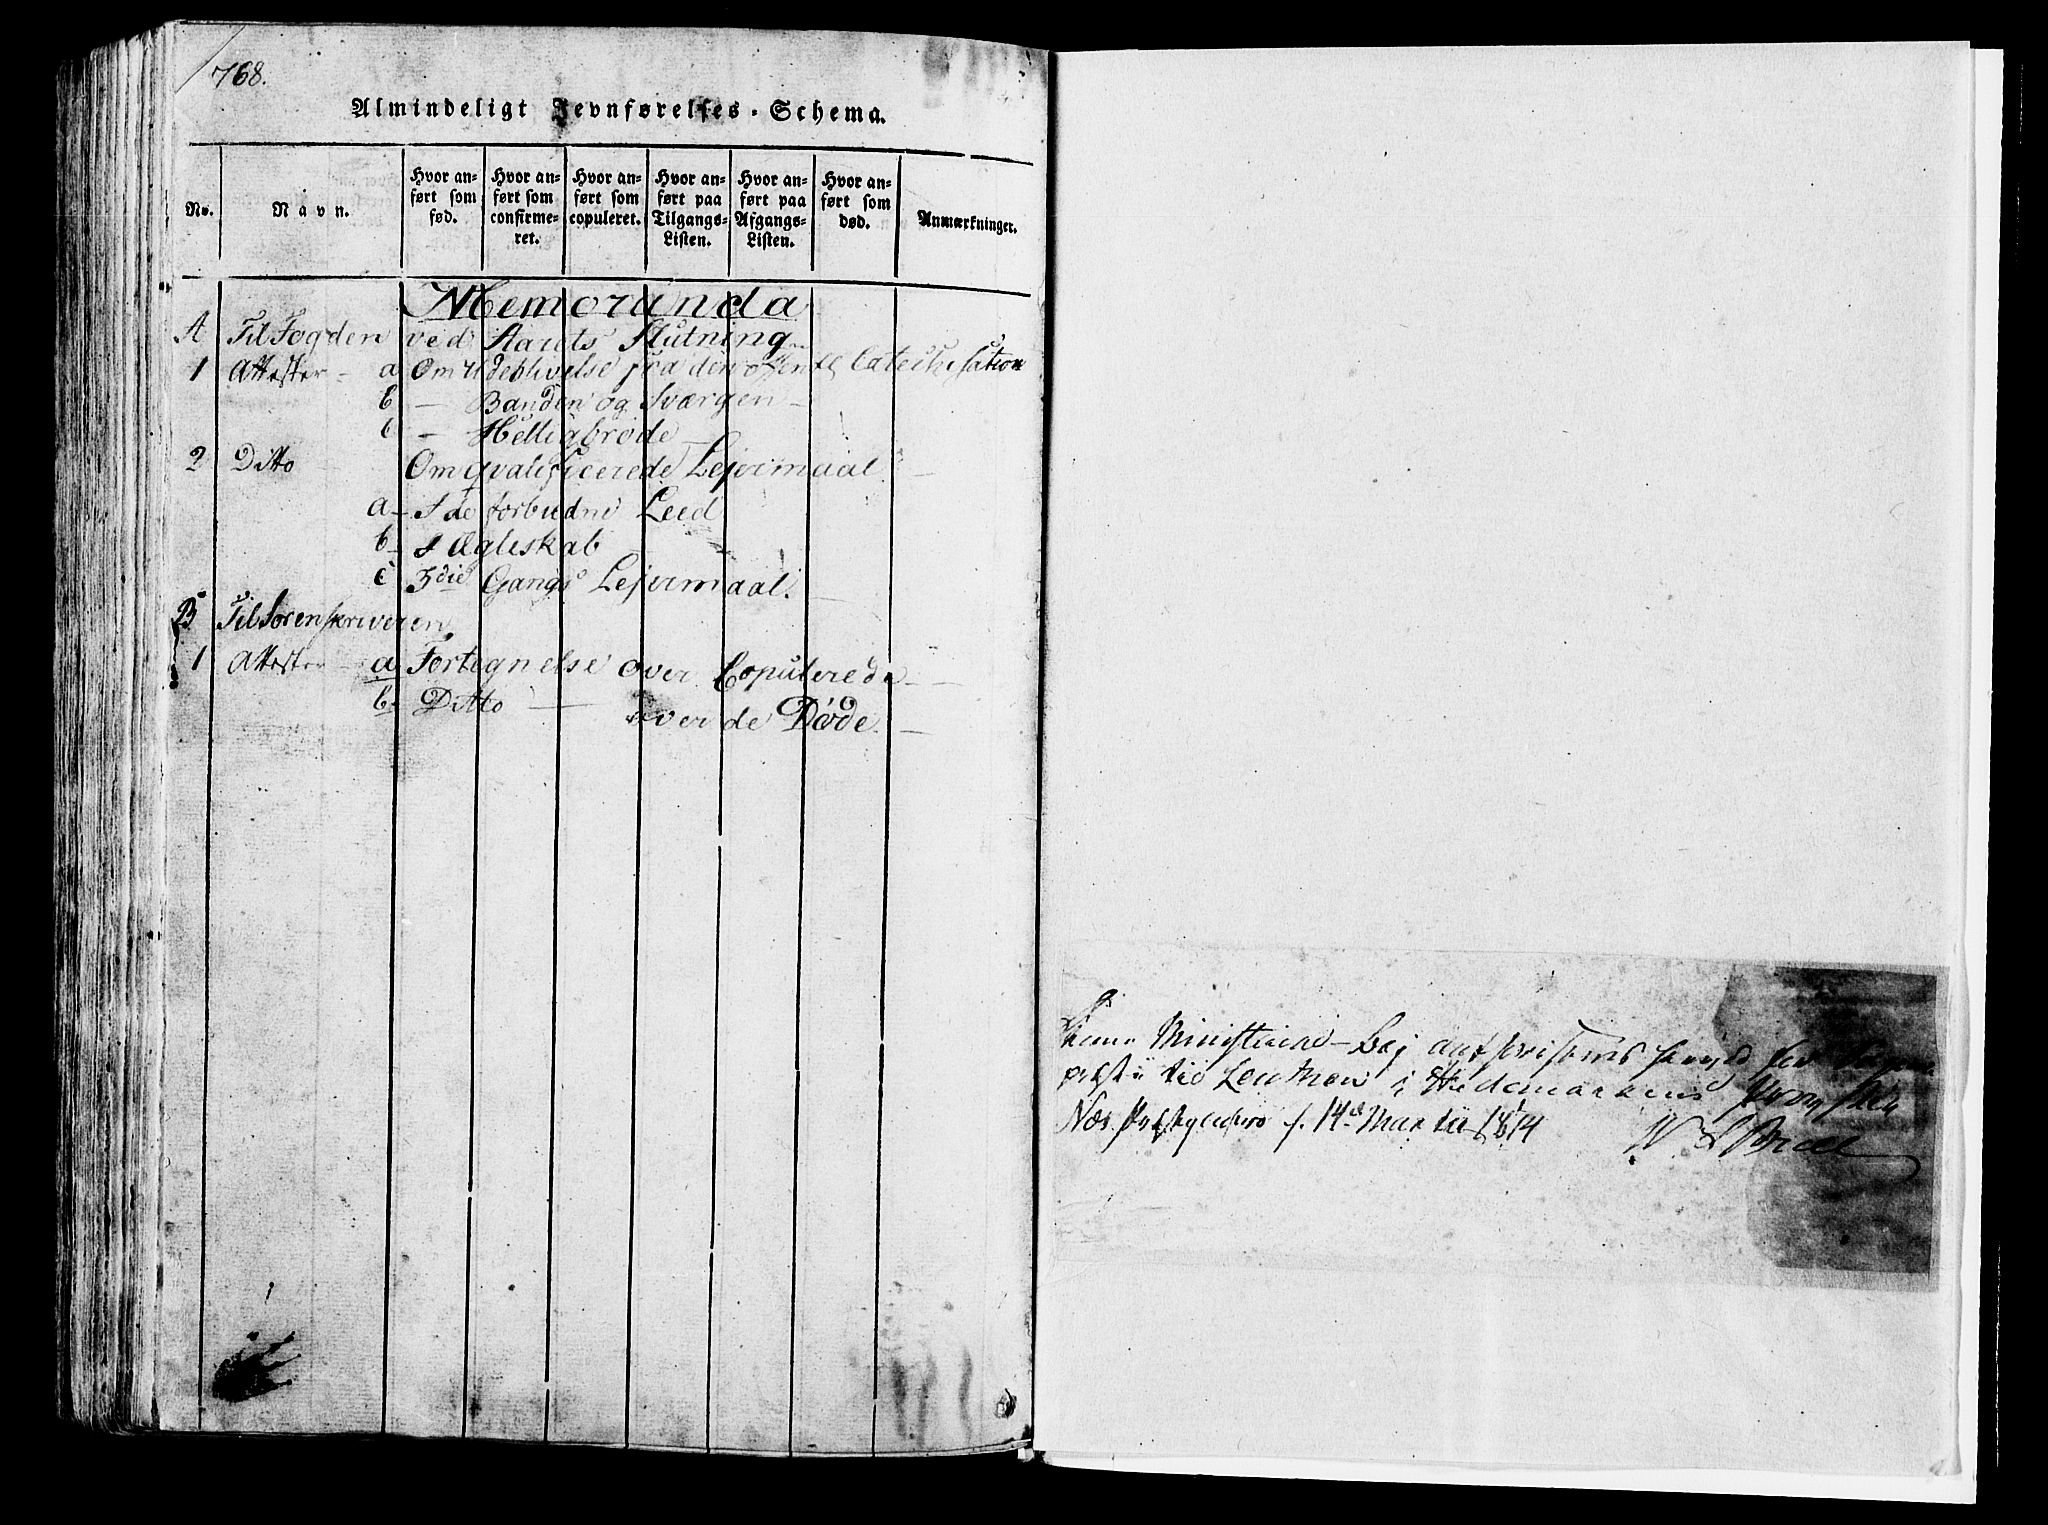 768.
Almindeligt Jevnførelses-Schema.
No.
Navn.
Hvor an-
ført som
fød.
Hvor an-
ført som
confirme-
ret.
Hvor an-
ført som
copuleret.
Hvor an-
ført paa
Tilgangs-
Listen.
Hvor an-
ført paa
Afgangs-
Listen.
Hvor an-
ført som
død.
Anmærkninger.
Memoranda
A Til Fogden ved Aarets Slutning
1 Attester - a Om Udeblivelse fra den offentl Catechisation
b - Banden og Sværgen -
c - Helligbrøde -
2 Ditto - Om qvalificerede Lejermaal -
a - I de forbudne Leed
b - I Ægteskab
c 3die Gangs Lejermaal.
B Til Sorenskriveren
1 Attester - a Fortegnelse over Copulerede -
b. Ditto - over de Døde. -
Ministerial-Bog
til i Hedemarkens
Næs d. 14d Martii 1814